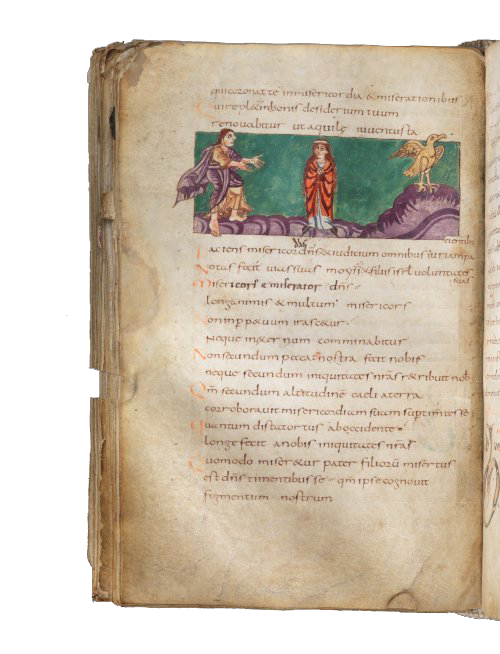 qui coronat te in misericordia & miserationibus
Qui replet in bonis desiderium tuum
renovabitur ut aquilę iuventus tua
Faciens misericor dns & iudicium omnibus iniuriam pa
tientib;
Notas fecit vias suas moysi & filiis isrl voluntates
suas
Misericors & miserator dns
longanimis & multum misericors
Non in pp&uum irasc&ur
Neque in &ernum comminabitur
Non secundum peccata nostra fecit nobis
neque secundum iniquitates nrãs r&ribuit nob
Qm̃ secundum altitudinẽ caeli a terra
corroboravit misericordiam suam sup timentes se
Quantum distat ortus ab occidente
longe fecit a nobis iniquitates nrãs
Quomodo miser&ur pater filiorũ misertus
est dns timentibus se qm̃ ipse cognovit
figmentum nostrum